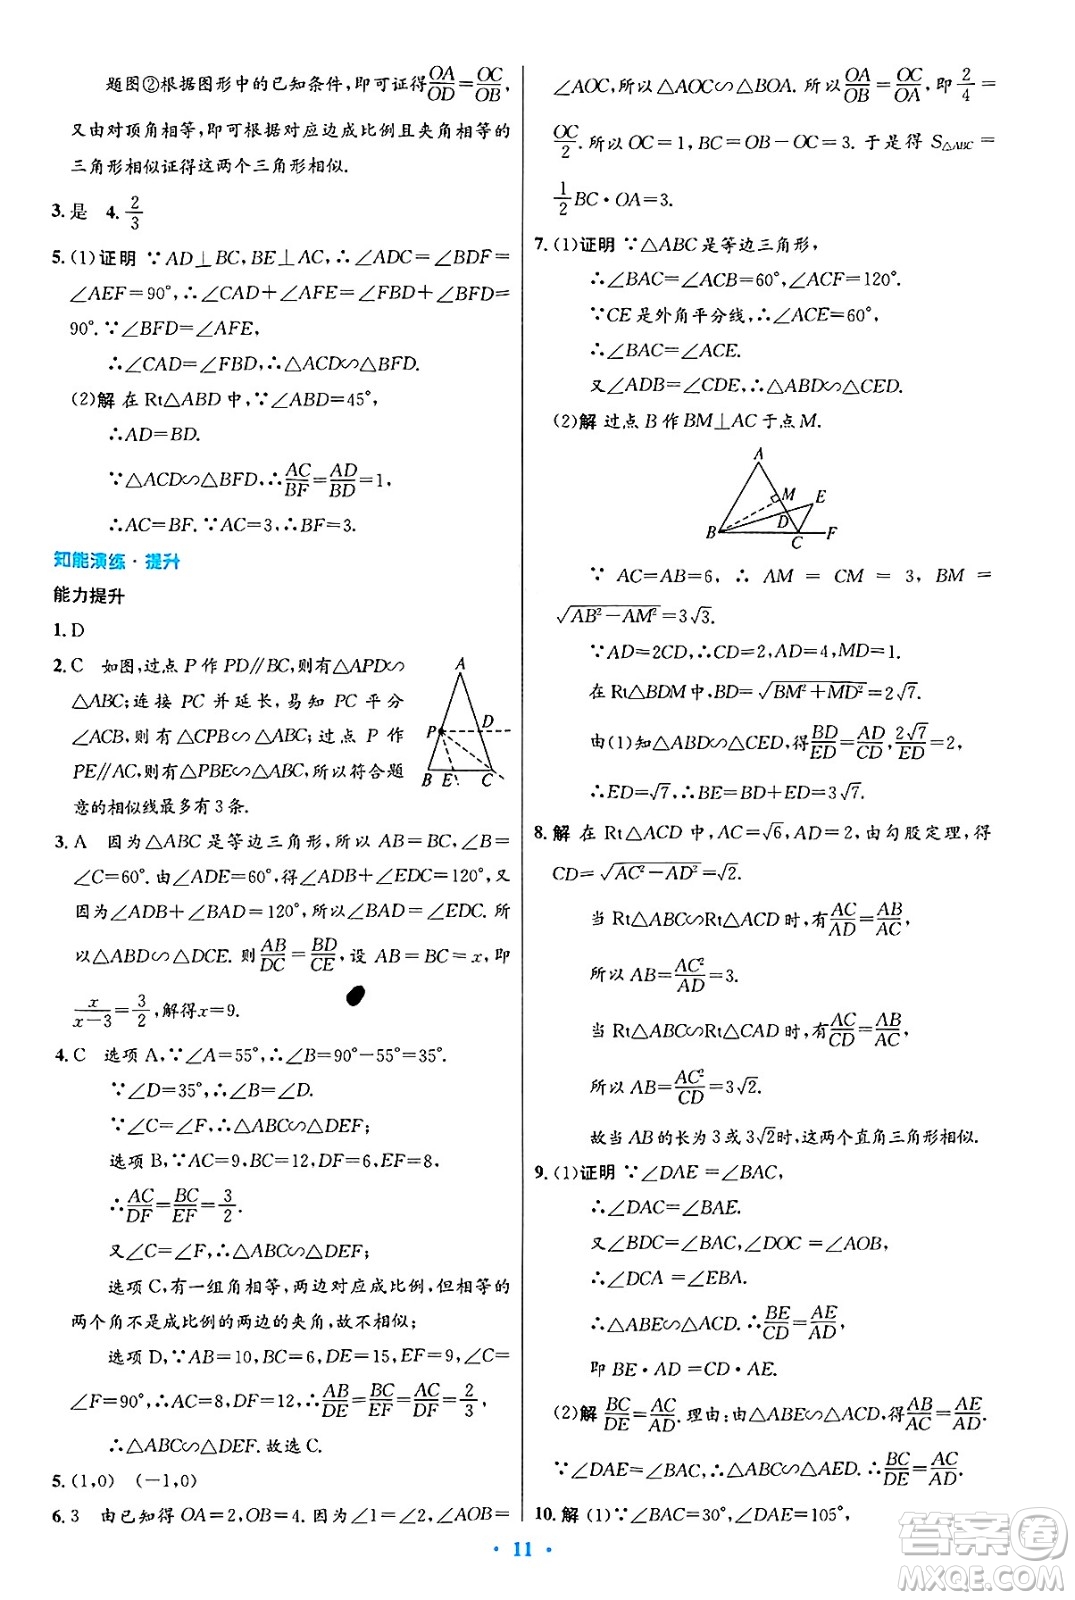 题图②根据图形中的已知条件,即可证得OA/OD=OC/OB,
又由对顶角相等,即可根据对应边成比例且夹角相等的
三角形相似证得这两个三角形相似.
3.是 4. 2/3
5.(1)证明 ∵AD⊥BC,BE⊥AC,∴∠ADC=∠BDF=
∠AEF=90°,∴∠CAD+∠AFE=∠FBD+∠BFD=
90°.∵∠BFD=∠AFE,
∴∠CAD=∠FBD,∴△ACD∽△BFD.
(2)解 在Rt△ABD中,∵∠ABD=45°,
∴AD=BD.
∵△ACD∽△BFD,∴AC/BF=AD/BD=1,
∴AC=BF.∵AC=3,∴BF=3.
知能演练·提升
能力提升
1.D
2.C 如图,过点P作PD∥BC,则有△APD∽
△ABC;连接PC并延长,易知PC平分
∠ACB,则有△CPB∽△ABC;过点P作
PE∥AC,则有△PBE∽△ABC,所以符合题
意的相似线最多有3条.
A
P D
B E C
3.A 因为△ABC是等边三角形,所以AB=BC,∠B=
∠C=60°.由∠ADE=60°,得∠ADB+∠EDC=120°,又
因为∠ADB+∠BAD=120°,所以∠BAD=∠EDC.所
以△ABD∽△DCE.则AB/DC=BD/CE,设AB=BC=x,即
x/(x−3)=3/2,解得x=9.
4.C 选项A,∵∠A=55°,∴∠B=90°−55°=35°.
∵∠D=35°,∴∠B=∠D.
∵∠C=∠F,∴△ABC∽△DEF;
选项B,∵AC=9,BC=12,DF=6,EF=8,
∴AC/DF=BC/EF=3/2.
又∠C=∠F,∴△ABC∽△DEF;
选项C,有一组角相等,两边对应成比例,但相等的
两个角不是成比例的两边的夹角,故不相似;
选项D,∵AB=10,BC=6,DE=15,EF=9,∠C=
∠F=90°,∴AC=8,DF=12,∴AB/DE=BC/EF=AC/DF=2/3,
∴△ABC∽△DEF.故选C.
5.(1,0) (−1,0)
6.3 由已知得OA=2,OB=4.因为∠1=∠2,∠AOB=
∠AOC,所以△AOC∽△BOA.所以OA/OB=OC/OA,即2/4=
OC/2.所以OC=1,BC=OB−OC=3.于是得S△ABC=
1/2BC·OA=3.
7.(1)证明 ∵△ABC是等边三角形,
∴∠BAC=∠ACB=60°,∠ACF=120°.
∵CE是外角平分线,∴∠ACE=60°,
∴∠BAC=∠ACE.
又∠ADB=∠CDE,∴△ABD∽△CED.
(2)解 过点B作BM⊥AC于点M.
A
M E
D
B C F
∵AC=AB=6,∴AM=CM=3,BM=
√(AB²−AM²)=3√3.
∵AD=2CD,∴CD=2,AD=4,MD=1.
在Rt△BDM中,BD=√(BM²+MD²)=2√7.
由(1)知△ABD∽△CED,得BD/ED=AD/CD,2√7/ED=2,
∴ED=√7,∴BE=BD+ED=3√7.
8.解 在Rt△ACD中,AC=√6,AD=2,由勾股定理,得
CD=√(AC²−AD²)=√2.
当Rt△ABC∽Rt△ACD时,有AC/AD=AB/AC,
所以AB=AC²/AD=3.
当Rt△ABC∽Rt△CAD时,有AC/CD=AB/AC,
所以AB=AC²/CD=3√2.
故当AB的长为3或3√2时,这两个直角三角形相似.
9.(1)证明 ∵∠DAE=∠BAC,
∴∠DAC=∠BAE.
又∠BDC=∠BAC,∠DOC=∠AOB,
∴∠DCA=∠EBA.
∴△ABE∽△ACD.∴BE/CD=AE/AD,
即BE·AD=CD·AE.
(2)解 BC/DE=AC/AD.理由:由△ABE∽△ACD,得AB/AC=AE/AD.
∵∠DAE=∠BAC,∴△ABC∽△AED.∴BC/DE=AC/AD.
10.解 (1)∵∠BAC=30°,∠DAE=105°,
·11·
答案卷
MXQE.COM